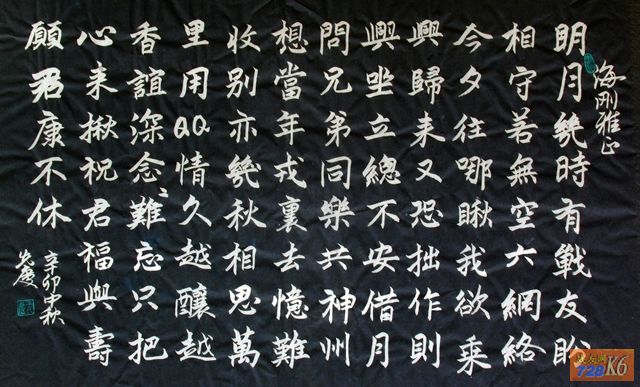 海刚雅正
明月幾時有戰友盼
相守若無空六網絡
今夕往哪瞅我欲乘
興歸来又恐拙作則
興坐立總不安借月
問兄弟同樂共神州
想當年戎裏去憶難
收别亦幾秋相思萬
里用QQ情久越釀越
香誼深念難忘只把
心来揪祝君福與壽
願君康不休
辛卯中秋
战友网
728K6